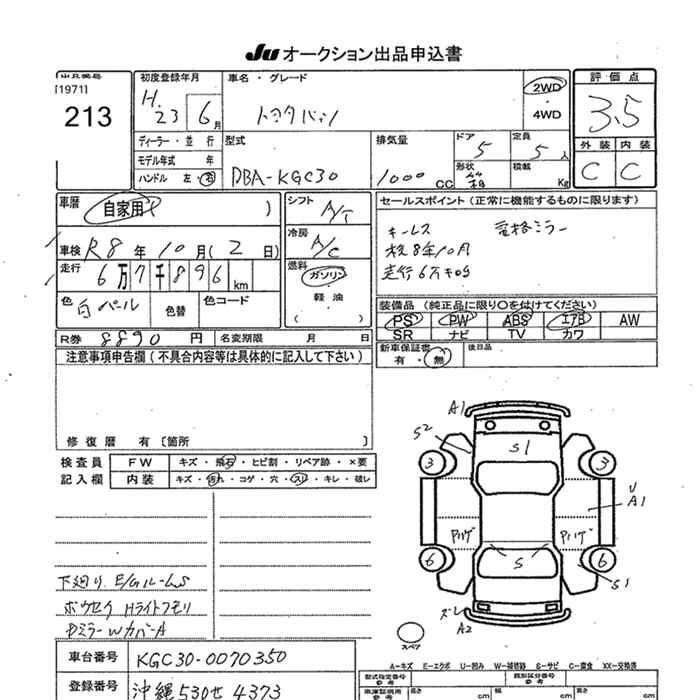 JU オークション出品申込書
[1971]
213
初度登録年月
H. 23 6 月
車名・グレード
トヨタパッソ
2WD
4WD
評価点
3.5
外装 内装
C C
ディーラー・並行
モデル年式 年
ハンドル 左・右
型式
DBA-KGC30
排気量
1000 CC
ドア
5
形状
定員
5人
積載
Kg
車歴
自家用 )
車検 R8年10月(2日)
走行 6万7千896 km
色 白パール
色替
色コード
シフト
A/T
冷房
A/C
燃料
ガソリン
軽油
( )
セールスポイント(正常に機能するものに限ります)
キーレス 電格ミラー
税8年10月
走行6万キロ
装備品(純正品に限り○を付けてください)
PS PW ABS エアB AW
SR ナビ TV カワ
R券 8890 円
名変期限 月 日
新車保証書
有・無
後日品
注意事項申告欄(不具合内容等は具体的に記入して下さい)
修復歴 有〔箇所 〕
検査員
記入欄
FW キズ・飛石・ヒビ割・リペア跡・×要
内装 キズ・汚れ・コゲ・穴・スレ・キレ・破レ
A1
S2
S1
3 3
U
A1
Pハゲ Pハゲ
6 S 6
S1
ズレ
A2
スペア
下廻り. E/GルームS
ボウセク Hライトクモリ
DミラーWカバーA
A-キズ E-エクボ U-凹み W-補修跡 S-サビ C-腐食 XX-交換済
車台番号 KGC30-0070350
登録番号 沖縄530せ4373
型式指定番号
参考
類別区分番号
参考
長さ cm 幅 cm 高さ cm